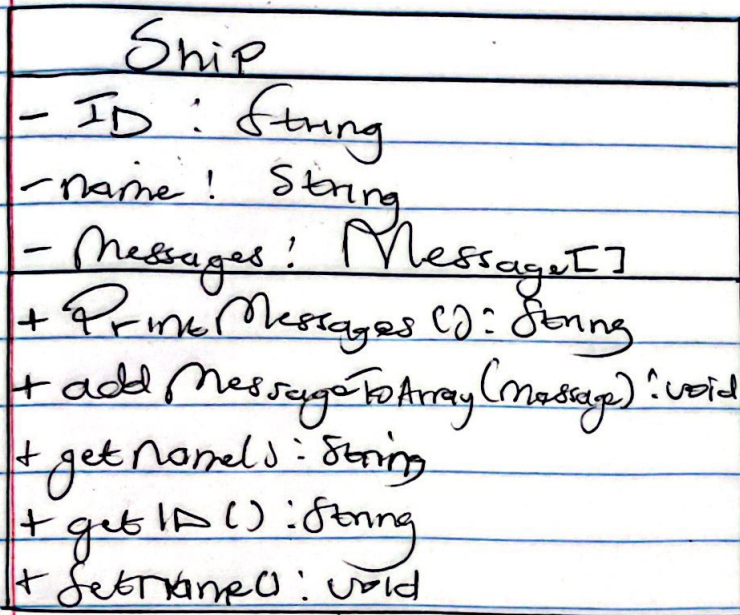 Ship
- ID : String
- name : String
- Messages : Message[]
+ PrintMessages() : String
+ addMessageToArray(Message) : void
+ getname() : String
+ getID() : String
+ setname() : void